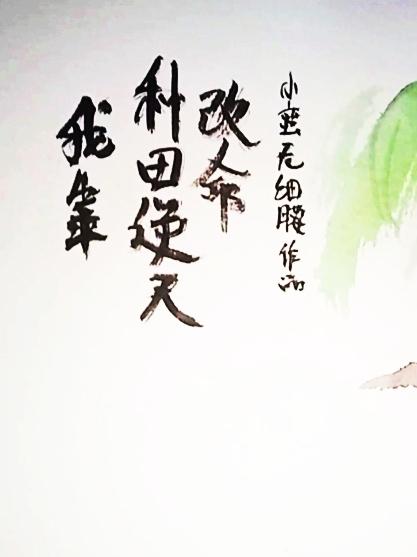 我辈
种田逆天
改命
小蛮无细腰作品